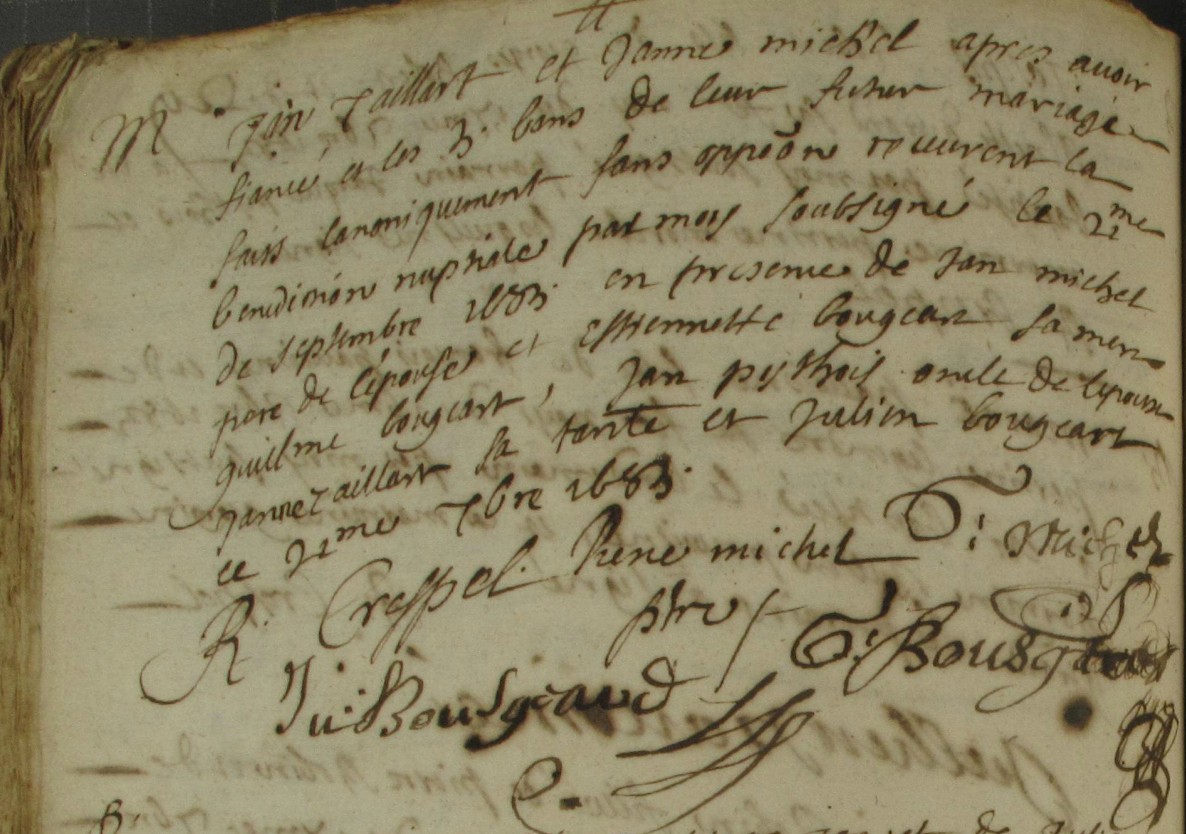 M jan Taillart et Janne michel apres auoir
fiancé et les 3 bans de leur futur mariage
faits canoniquement sans oppōon receurent la
benediction nuptiale par moy soubsigné le 22me
de septembre 1683 en presence de Jan michel
pere de l'epouse et estiennette bougeart sa mere
guilme bougeart, Jan pythois oncle de lepouse
janne Taillart sa tante et Julien bougeart
ce 22me 7bre 1683
R. Crespel. Rene michel G: Michel
ptre G: Bousgeard
Ju: Bousgeaud